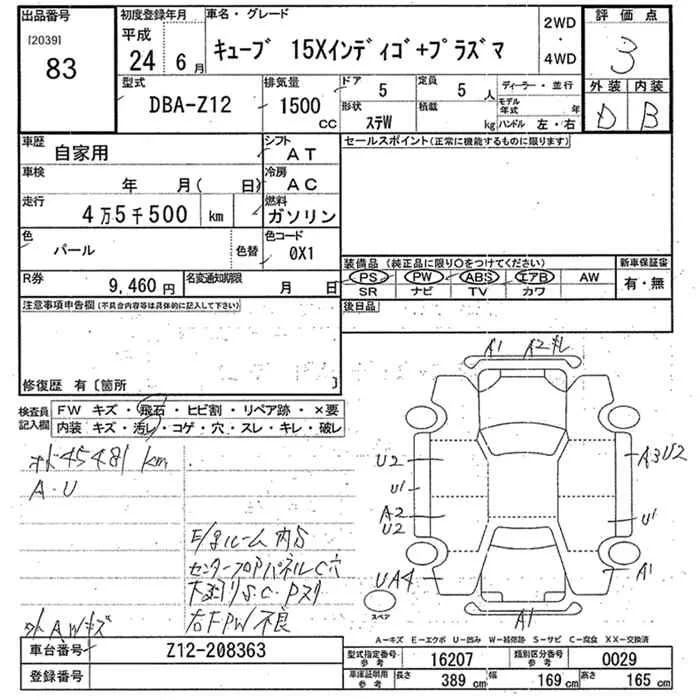 出品番号 初度登録年月 車名・グレード 2WD・4WD 評価点
[2039] 83 平成 24年 6月 キューブ 15Xインディゴ+プラズマ 3
型式 排気量 ドア 5 定員 5人 ディーラー・並行 外装 内装
DBA-Z12 1500 CC 形状 ステW 積載 kg モデル年式 年 ハンドル 左・右 D B
車歴 自家用 シフト AT セールスポイント(正常に機能するものに限ります)
車検 年 月( 日) 冷房 AC
走行 4万5千500 km 燃料 ガソリン
色 パール 色替 色コード 0X1
装備品 (純正品に限り〇をつけてください) 新車保証書
PS PW ABS エアB AW 有・無
SR ナビ TV カワ
R券 9,460円 名変通知期限 月 日
注意事項申告欄(不具合内容等は具体的に記入して下さい) 後日品
修復歴 有〔箇所 〕
検査員記入欄 FW キズ・飛石・ヒビ割・リペア跡・×要
内装 キズ・汚レ・コゲ・穴・スレ・キレ・破レ
A1 A2
45481 km
A・U
U2 A3U2
U1 U1
A2
U2
E/gルーム内S
センターフロアパネルC穴
UA4 A1
下廻りS・C・Pスリ
右FPW不良
外 A.Wキズ
スペア A1
A-キズ E-エクボ U-凹み W-補修跡 S-サビ C-腐食 XX-交換済
車台番号 Z12-208363 型式指定番号 参考 16207 類別区分番号 参考 0029
登録番号 車庫証明用 参考 長さ 389 cm 幅 169 cm 高さ 165 cm